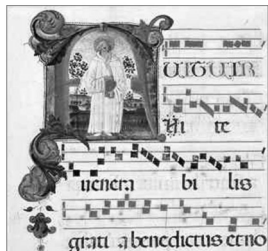 FUIT UIR
Vi te
uenera bi lis
grati a benedictus et no